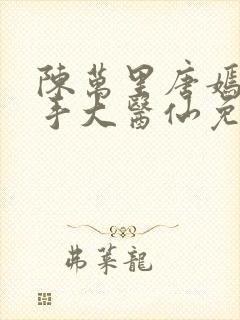 陳萬里唐嫣
手大醫仙免
弗萊龍